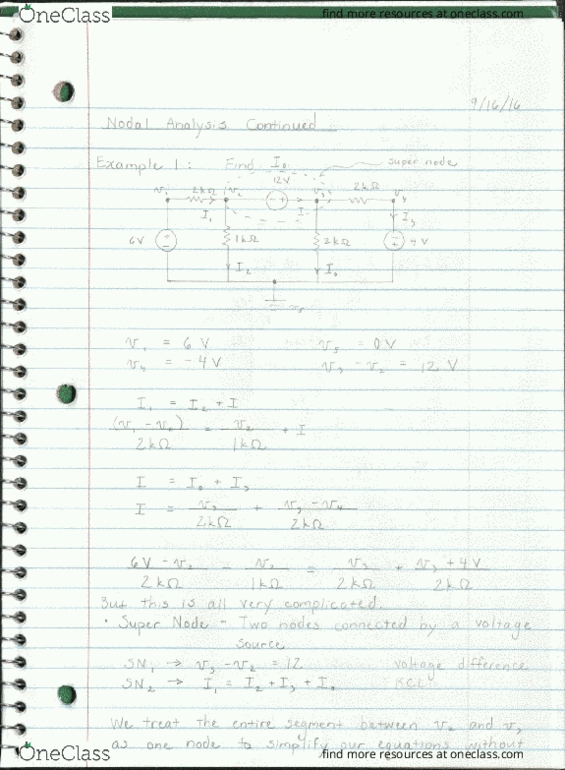 OneClass find more resources at oneclass.com
9/16/16
Nodal Analysis Continued
Example 1: Find I₀ super node
12V
v₁ 2kΩ v₂ - + v₃ 2kΩ v₄
I₁ I I₃
6V 1kΩ 2kΩ 4V
I₂ I₀
v₅
v₁ = 6V v₅ = 0V
v₄ = -4V v₃ - v₂ = 12V
I₁ = I₂ + I
(v₁ - v₂) = v₂ + I
2kΩ 1kΩ
I = I₀ + I₃
I = v₃ + v₃ - v₄
2kΩ 2kΩ
6V - v₂ - v₂ = v₃ + v₃ + 4V
2kΩ 1kΩ 2kΩ 2kΩ
But this is all very complicated.
• Super Node - Two nodes connected by a voltage
source
SN₁ → v₃ - v₂ = 12 voltage difference
SN₂ → I₁ = I₂ + I₃ + I₀ KCL
We treat the entire segment between v₂ and v₃
as one node to simplify our equations without
OneClass find more resources at oneclass.com